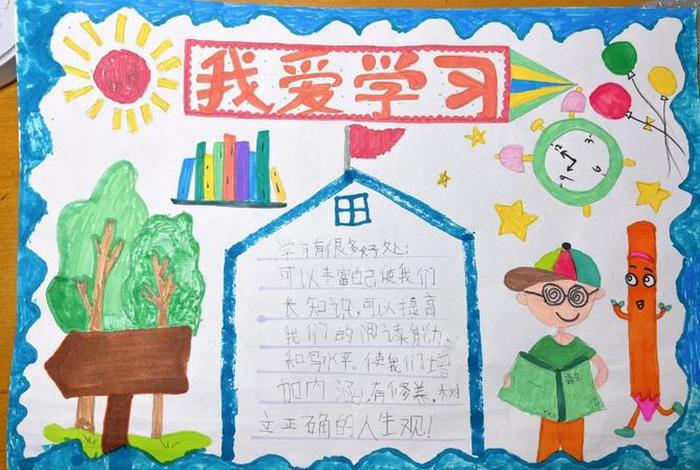 我爱学习
学习有很多好处:
可以丰富自己使我们
长知识,可以提高
我们的阅读能力,
和写水平,使我们增
加内涵,有修养,树
立正确的人生观!